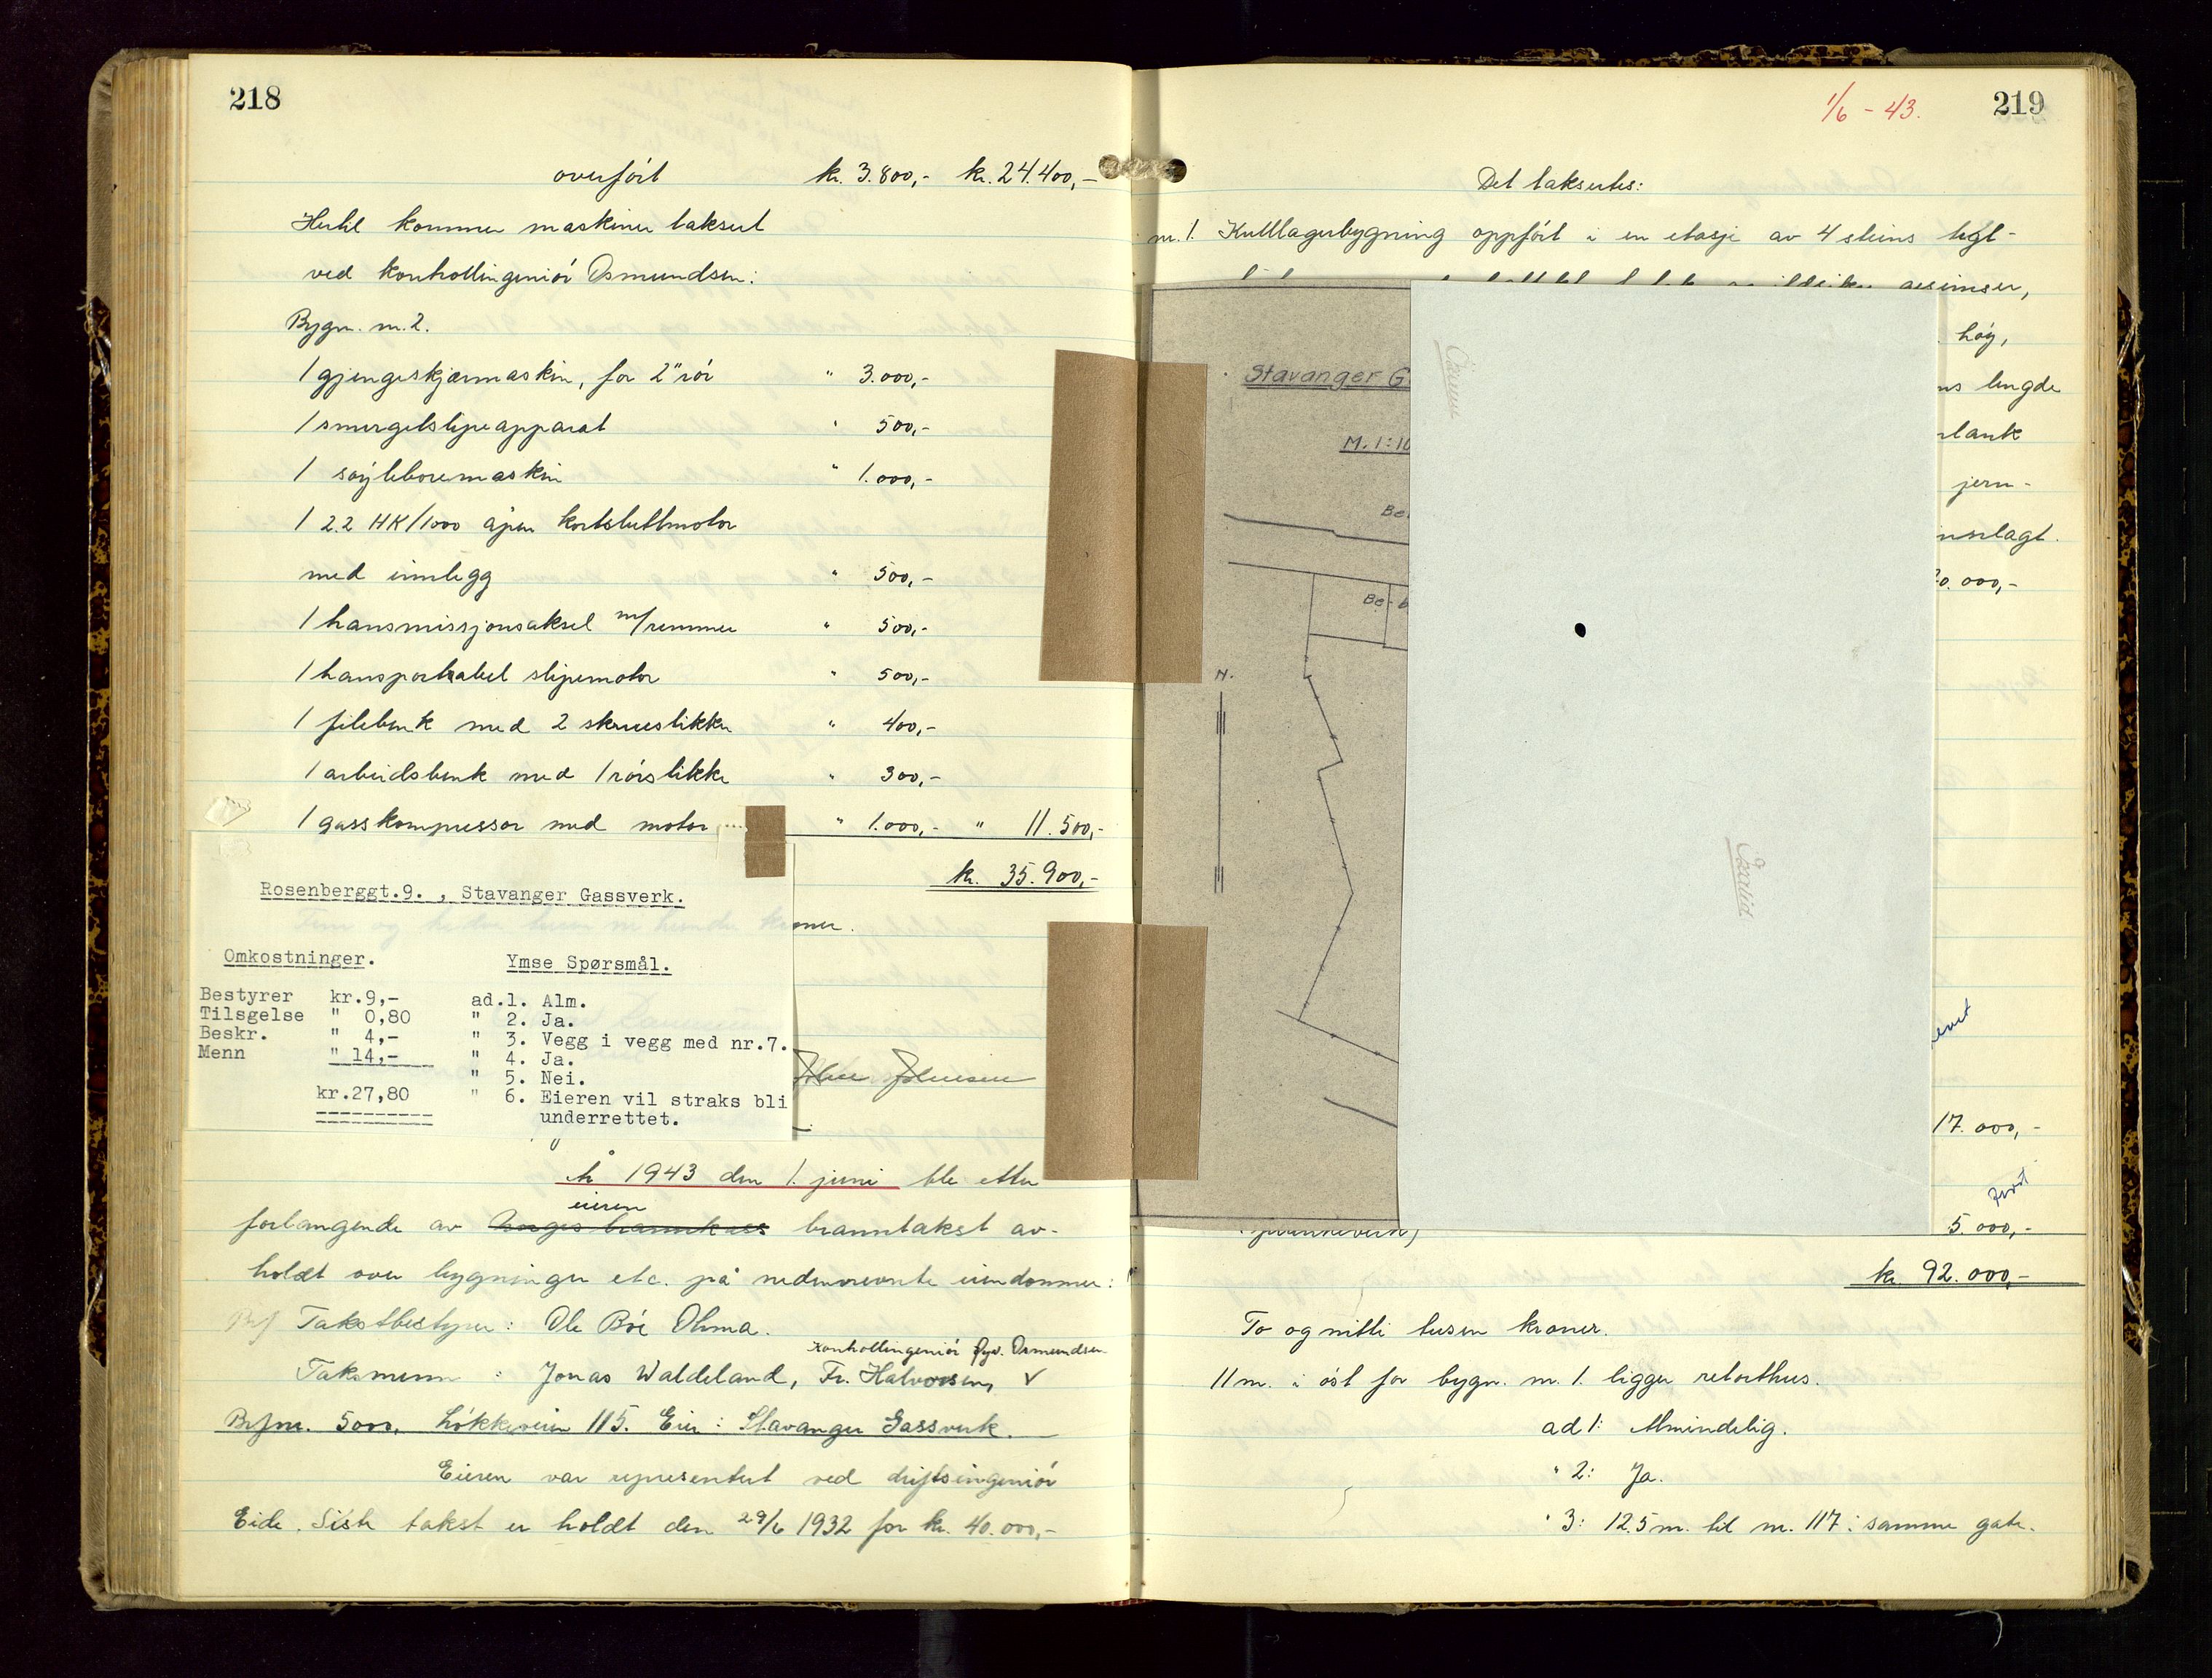 218
overført kr. 3.800,- kr. 24.400,-
Hertil kommer maskiner taksert
ved kontrollingeniør Osmundsen:
Bygn. nr. 2.
1 gjengeskjærmaskin, for 2" rør " 3.000,-
1 smergelslipeapparat " 500,-
1 søyleboremaskin " 1.000,-
1 2.2 HK/1000 åpen kortsluttmotor
med innlegg " 500,-
1 transmissjonsaksel m/remmer " 500,-
1 transportabel slipemotor " 500,-
1 filebenk med 2 skruestikker " 400,-
1 arbeidsbenk med 1 rørstikke " 300,-
1 gasskompressor med motor " 1.000,- " 11.500,-
kr. 35.900,-
Rosenberggt.9. , Stavanger Gassverk.
Fem og tretti tusen ni hundre kroner.
Omkostninger.
Bestyrer kr.9,-
Tilsgelse " 0,80
Beskr. " 4,-
Menn " 14,-
kr.27,80
Ymse Spørsmål.
ad.1. Alm.
" 2. Ja.
" 3. Vegg i vegg med nr.7.
" 4. Ja.
" 5. Nei.
" 6. Eieren vil straks bli
underrettet.
År 1943 den 1. juni ble etter
eieren
forlangende av Norges brannkasse branntakst av-
holdt over bygninger etc. på nedennevnte eiendommer:
Takstbestyrer: Ole Bøe Olsma.
Kontrollingeniør Osmundsen
Taksmenn : Jonas Waldeland, Fr. Halvorsen, √
Brfnr. 5000. Løkkeveien 115. Eier: Stavanger Gassverk.
Eieren var representert ved driftsingeniør
Eide. Siste takst er holdt den 29/6 1932 for kr. 40.000,-
1/6 - 43.
219
Det takseres:
nr. 1. Kullagerbygning oppført i en etasje av 4 steins tegl-
gesimser,
høy,
lengde
jern-
17.000,-
5.000,-
kr. 92.000,-
Stavanger G
M. 1:10
Be
Be-b
N.
To og nitti tusen kroner.
11 m. i øst for bygn. nr. 1. ligger retorthus.
ad 1: Almindelig.
" 2: Ja.
" 3: 12.5 m. til nr. 117 i samme gate.